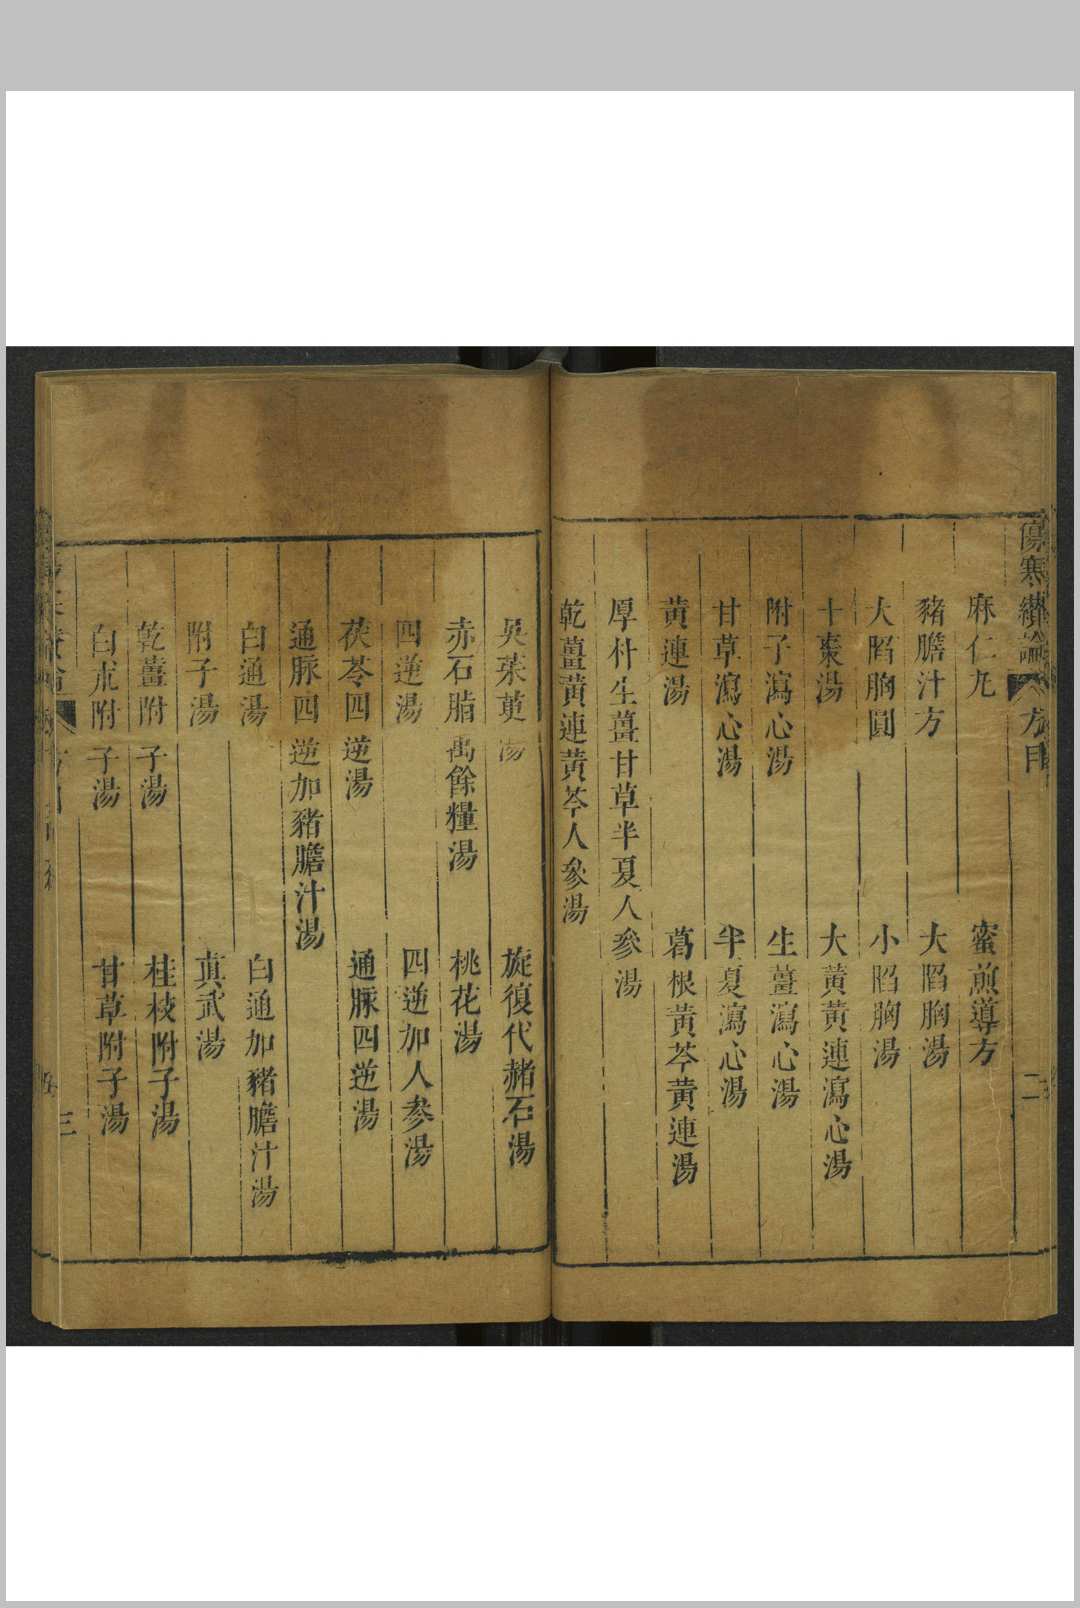 傷寒纘論 方目 二
麻仁丸 蜜煎導方
豬膽汁方 大陷胸湯
大陷胸圓 小陷胸湯
十棗湯 大黃黃連瀉心湯
附子瀉心湯 生薑瀉心湯
甘草瀉心湯 半夏瀉心湯
黃連湯 葛根黃芩黃連湯
厚朴生薑甘草半夏人參湯
乾薑黃連黃芩人參湯
吳茱萸湯 旋復代赭石湯
赤石脂禹餘糧湯 桃花湯
四逆湯 四逆加人參湯
茯苓四逆湯 通脈四逆湯
通脈四逆加豬膽汁湯
白通湯 白通加豬膽汁湯
附子湯 真武湯
乾薑附子湯 桂枝附子湯
白朮附子湯 甘草附子湯
三